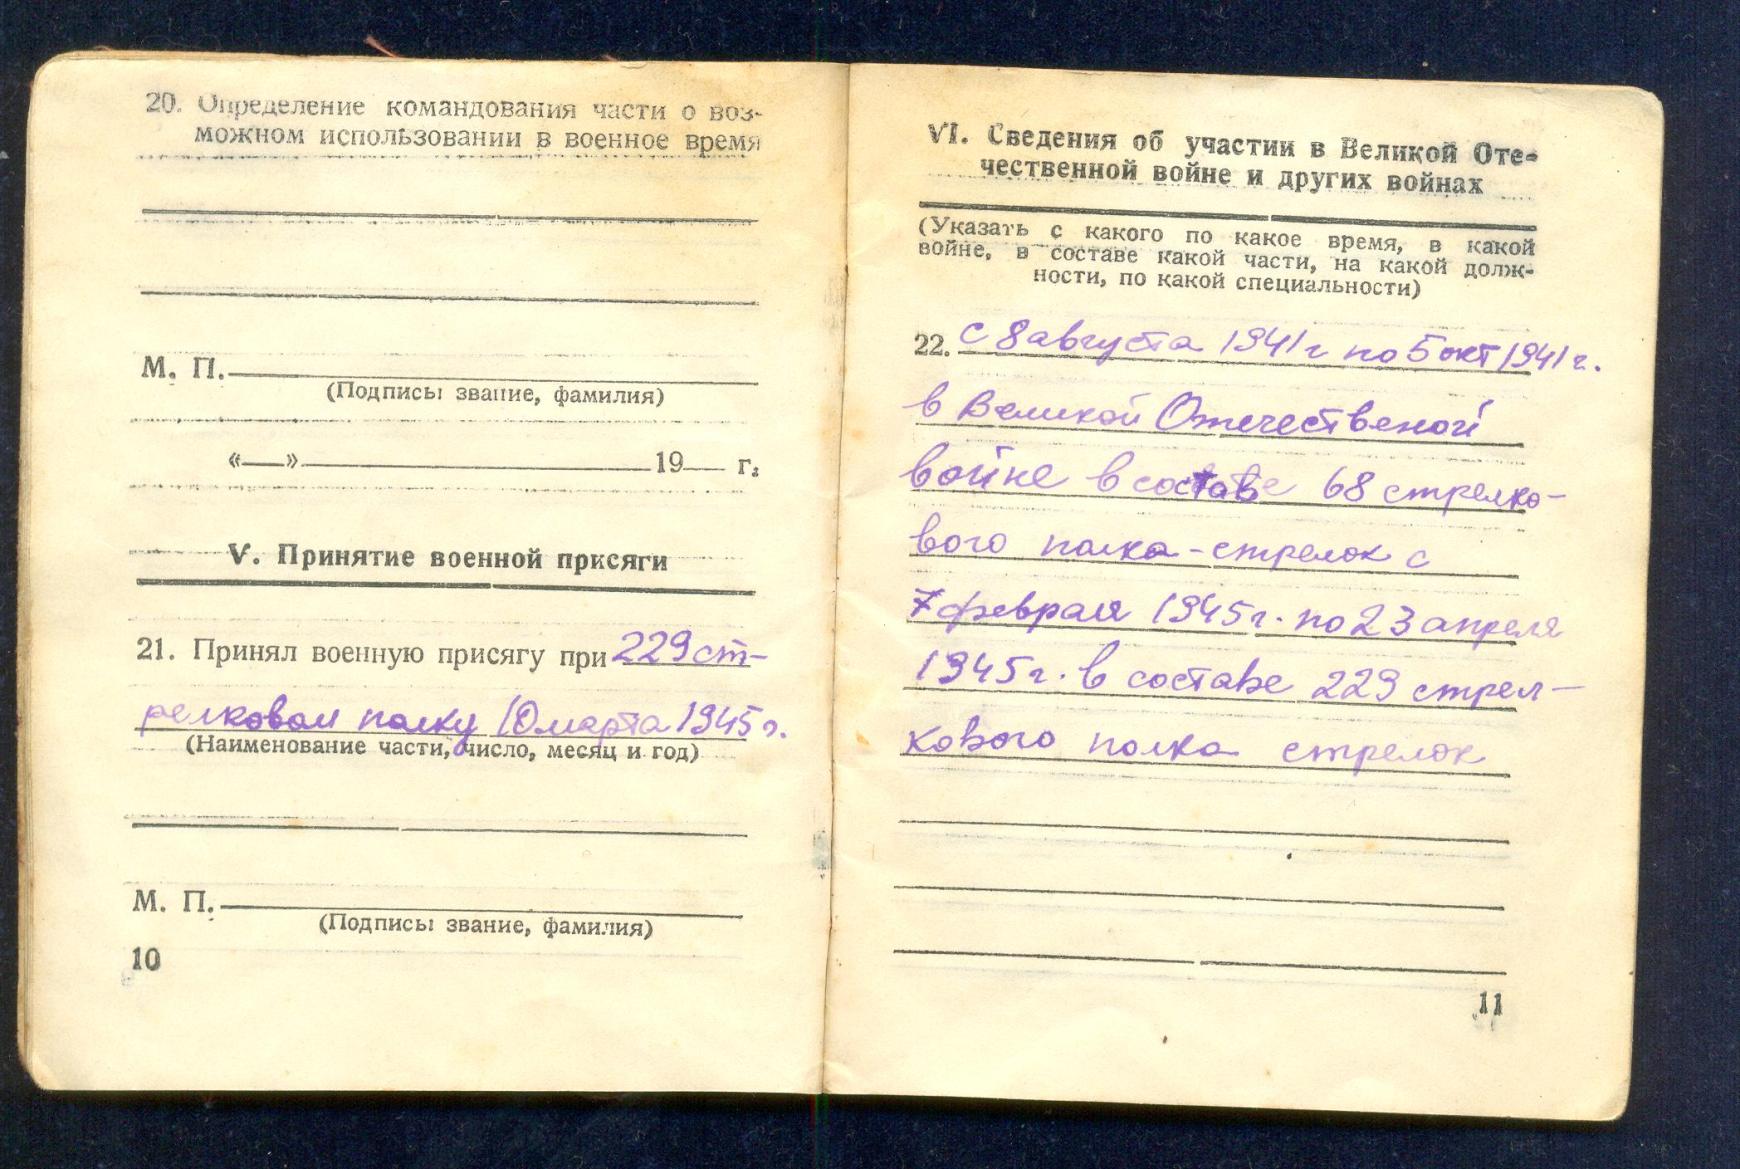 20. Определение командования части о воз-
можном использовании в военное время
М. П.
(Подпись: звание, фамилия)
«—» 19 г.
V. Принятие военной присяги
21. Принял военную присягу при 229 ст-
релковом полку 10 марта 1945 г.
(Наименование части, число, месяц и год)
М. П.
(Подпись: звание, фамилия)
10
VI. Сведения об участии в Великой Оте-
чественной войне и других войнах
(Указать с какого по какое время, в какой
войне, в составе какой части, на какой долж-
ности, по какой специальности)
22. с 8 августа 1941 г по 5 окт 1941 г.
в Великой Отечественой
войне в составе 68 стрелко-
вого полка - стрелок с
7 февраля 1945 г. по 23 апреля
1945 г. в составе 229 стрел-
кового полка стрелок
11